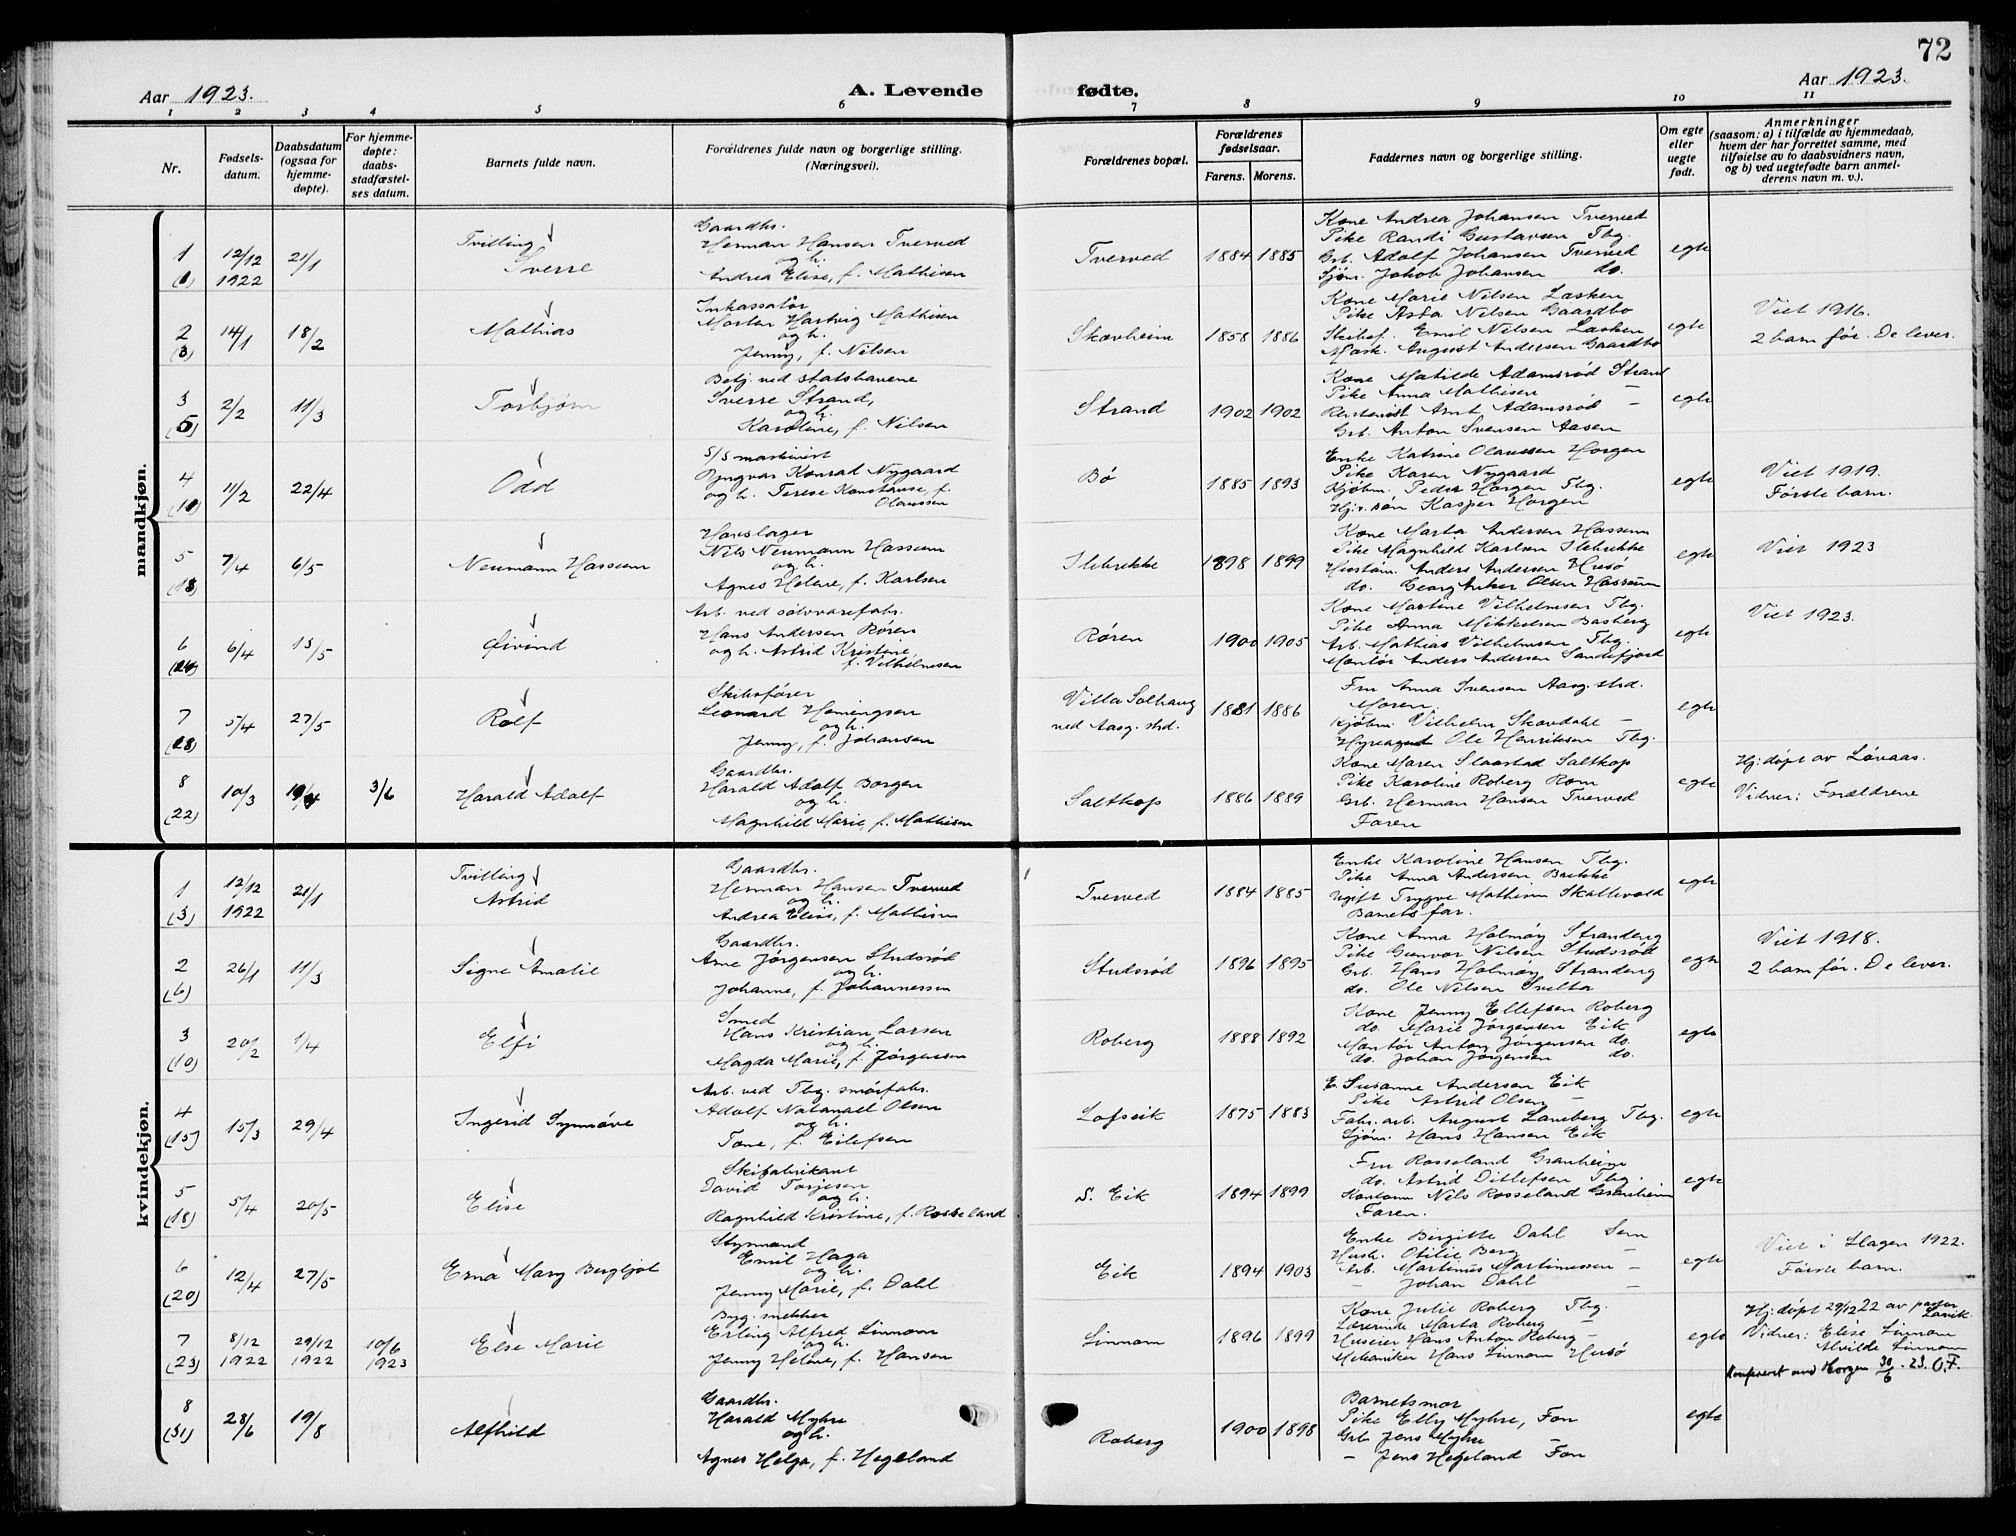 72
Aar 1923.
A. Levende
fødte.
Aar 1923.
1 2 3 4 5 6 7 8 9 10 11
Nr.
Fødsels-
datum.
Daabsdatum
(ogsaa for
hjemme-
døpte).
For hjemme-
døpte:
daabs-
stadfæstel-
ses datum.
Barnets fulde navn.
Forældrenes fulde navn og borgerlige stilling.
(Næringsvei).
Forældrenes bopæl.
Forældrenes
fødselsaar.
Farens. Morens.
Faddernes navn og borgerlige stilling.
Om egte
eller
uegte
født.
Anmerkninger
(saasom: a) i tilfælde av hjemmedaab,
hvem der har forrettet samme, med
tilføielse av to daabsvidners navn,
og b) ved uegtefødte barn anmel-
derens navn m. v.).
mandkjøn.
1
12/12
1922
21/1
Tvilling
Sverre
Gaardbr.
Herman Hansen Tverved
og h.
Andrea Elise, f. Mathisen
Tverved
1884 1885
Kone Andrea Johansen Tverved
Pike Randi Gustavsen Tbg.
Grb. Adolf Johansen Tverved
Sjøm. Jakob Johansen do.
egte
2
(3)
14/1
18/2
Mathias
Inkassatør
Morten Hartvig Mathisen
og h.
Jenny, f. Nilsen
Skovheim
1858 1886
Kone Marie Nilsen Lasken
Pike Asta Nilsen Gaardbo
Skibsf. Emil Nilsen Lasken
Mask. August Andersen Gaardbo
egte
Viet 1916.
2 barn før. De lever.
3
(5)
2/2
11/3
Torbjørn
Betj. ved statsbanene
Sverre Strand,
og h.
Karoline, f. Nilsen
Strand
1902 1902
Kone Matilde Adamsrød Strand
Pike Anna Mathisen —
Arnt Adamsrød —
Grb. Anton Svensen Aasen
egte
4
11/2
22/4
Odd
S/S maskinist
Yngvar Konrad Nygaard
og h. Terese Konstanse, f.
Olaussen
Bø
1885 1893
Enke Katrine Olaussen Horgen
Pike Karen Nygaard
Kjøbm. Peder Horgen Tbg.
Hj.v. søn Kasper Horgen
egte
Viet 1919.
Første barn.
5
(13)
7/4
6/5
Neumann Hassum
Nils Neumann Hassum
og h.
Agnes Helene, f. Karlsen
Ilebrekke
1898 1899
Kone Marta Andersen Hassum
Pike Magnhild Karlsen Ilebrekke
Anders Andersen Husø
do. Georg Anker Olsen Hassum
egte
Viet 1923
6
6/4
13/5
Øivind
Arb. ved sølvvarefabr.
Hans Andersen Røren
og h. Astrid Kristine,
f. Vilhelmsen
Røren
1900 1905
Kone Martine Vilhelmsen Tbg.
Pike Anna Mikkelsen Basberg
Arb. Mathias Vilhelmsen Tbg.
Montør Anders Andersen Sandefjord
egte
Viet 1923.
7
(18)
5/4
27/5
Rolf
Skibsfører
Leonard Hemingsen
og h.
Jenny, f. Johansen
Villa Solhaug
ved Aasg. strd.
1881 1886
Fru Anna Svensen Aasg. strd.
Moren.
Kjøbm. Vilhelm Skovdahl —
Hyreagent Ole Henriksen Tbg.
egte
8
(22)
10/3
3/6
Harald Adolf
Gaardbr.
Harald Adolf Borgen
og h.
Magnhild Marie, f. Mathisen
Saltkop
1886 1889
Kone Maren Slaastad Saltkop
Pike Karoline Roberg Rom
Grb. Herman Hansen Tverved
Faren
egte
Hj: døpt av Løvaas.
Vidner: Forældrene
kvindekjøn.
1
(3)
12/12
1922
21/1
Tvilling
Astrid
Gaardbr.
Herman Hansen Tverved
og h.
Andrea Elise, f. Mathisen
Tverved
1884 1885
Enke Karoline Hansen Tbg.
Pike Anna Andersen Brekke
Ugift Trygve Mathisen Skallevold
Barnets far.
egte
2
(6)
26/1
11/3
Signe Amalie
Gaardbr.
Arne Jørgensen Studsrød
og h.
Johanne, f. Johannessen
Studsrød
1896 1895
Kone Anna Holmøy Strandeng
Pike Gunvor Nilsen Studsrød
Grb. Hans Holmøy Strandeng
do. Ole Nilsen Svelta
egte
Viet 1918.
2 barn før. De lever.
3
(10)
20/2
1/4
Elfi
Smed
Hans Kristian Larsen
og h.
Magda Marie, f. Jørgensen
Roberg
1888 1892
Kone Jenny Ellefsen Roberg
do. Marie Jørgensen Eik
Montør Anton Jørgensen do.
do. Johan Jørgensen do.
egte
4
(15)
15/3
29/4
Ingerid Synnøve
Arb. ved Tbg. smørfabr.
Adolf Natanael Olsen
og h.
Tone, f. Eilefsen
Lofseik
1875 1883
E. Susanne Andersen Eik
Pike Astrid Olsen —
Fabr. arb. August Laneberg Tbg.
Sjøm. Hans Hansen Eik
egte
5
(18)
5/4
20/5
Elise
Skifabrikant
David Torjesen
og h.
Ragnhild Kristine, f. Rosseland
S. Eik
1894 1899
Fru Rosseland Granheim
do. Astrid Ditlefsen Tbg.
Kontorm. Nils Rosseland Granheim
Faren.
egte
6
(20)
12/4
27/5
Erna Mary Bergljot
Styrmand
Emil Haga
og h.
Jenny Marie, f. Dahl
Eik
1894 1903
Enke Birgitte Dahl Sem
Husb. Otilie Berg —
Arb. Martinus Martinussen —
— Johan Dahl —
egte
Viet i Slagen 1922.
Første barn.
7
(23)
8/12
1922
29/12
1922
10/6
1923
Else Marie
Byg. snekker
Erling Alfred Linnom
og h.
Jenny Helene, f. Hansen
Linnom
1896 1899
Kone Julie Roberg Tbg.
Lærerinde Marta Roberg —
Huseier Hans Anton Roberg —
Mekaniker Hans Linnom Husø
egte
Hj: døpt 29/12 22 av
Vidner: Elise Linnom
Alvilde Linnom
Konferert med Horgen 30/6 - 23. O.F.
8
(31)
28/6
19/8
Alfhild
Gaardbr.
Harald Myhre
og h.
Agnes Helga, f. Hegeland
Roberg
1900 1898
Barnetsmor
Pike Elly Myhre, Fon
Grb. Jens Myhre —
— Jens Hegeland Fon
egte